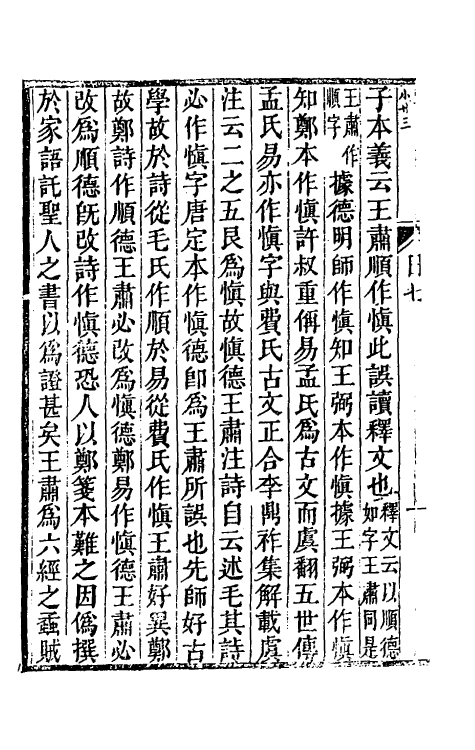 小廿三
子本義云王肅順作愼此誤讀釋文也釋文云以順德如字王肅同是
王肅作順字據德明師作愼知王弼本作愼據王弼本作愼
知鄭本作愼許叔重偁易孟氏爲古文而虞翻五世傳
孟氏易亦作愼字與費氏古文正合李鼎祚集解載虞
注云二之五艮爲愼故愼德王肅注詩自云述毛其詩
必作愼字唐定本作愼德卽爲王肅所誤也先師好古
學故於詩從毛氏作順於易從費氏作愼王肅好異鄭
故鄭詩作順德王肅必改爲愼德鄭易作愼德王肅必
改爲順德旣改詩作愼德恐人以鄭箋本難之因僞撰
於家語託聖人之書以爲證甚矣王肅爲六經之蟊賊